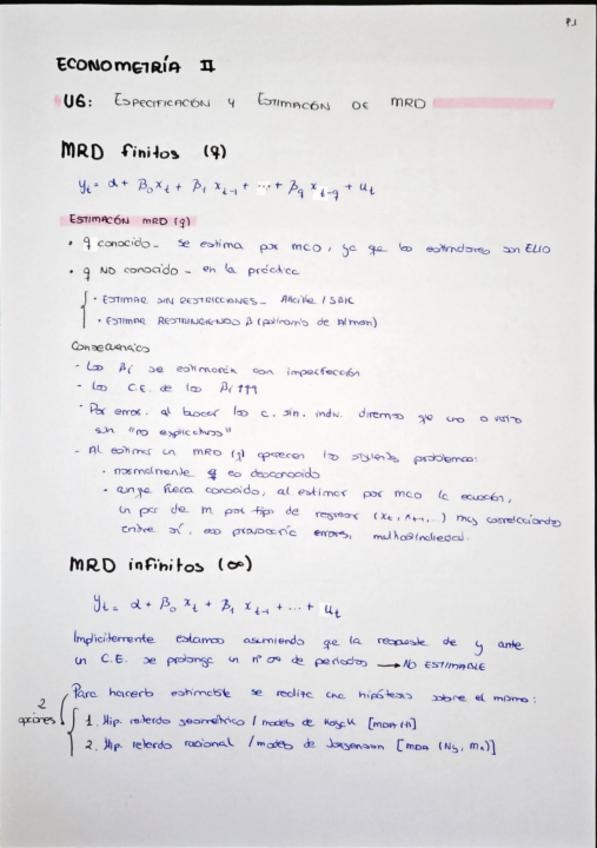 P.1
ECONOMETRÍA II
U6: ESPECIFICACIÓN Y ESTIMACIÓN DE MRD
MRD finitos (q)
yt = α + β0xt + β1 xt-1 + ... + βq xt-q + ut
ESTIMACIÓN MRD (q)
• q conocido - se estima por MCO, ya que los estimadores son ELIO
• q NO conocido - en la práctica
• ESTIMAR SIN RESTRICCIONES - AKAIKE / SBIC
• ESTIMAR RESTRINGIENDO β (polinomio de Almon)
Consecuencias
- Los βi se estimarán con imperfección
- Los C.E. de los βi ↑↑↑
- Por error, al buscar los c. sin. indiv. diremos que uno o varios
son "no explicativos"
- Al estimar un MRD (q) aparecen los siguientes problemas:
• normalmente q es desconocido
• aunque fuera conocido, al estimar por MCO la ecuación,
un par de m por tipo de regresor (xt, xt-1, ...) muy correlacionados
entre sí, eso provocaría errores, multicolinealidad.
MRD infinitos (∞)
yt = α + β0 xt + β1 xt-1 + ... + ut
Implícitamente estamos asumiendo que la respuesta de y ante
un C.E. se prolonga un nº ∞ de periodos → NO ESTIMABLE
Para hacerlo estimable se realiza una hipótesis sobre el mismo:
2 opciones
1. Hip. retardo geométrico / modelo de Koyck [MDA (1)]
2. Hip. retardo racional / modelo de Jorgenson [MDA (Ny, Mx)]